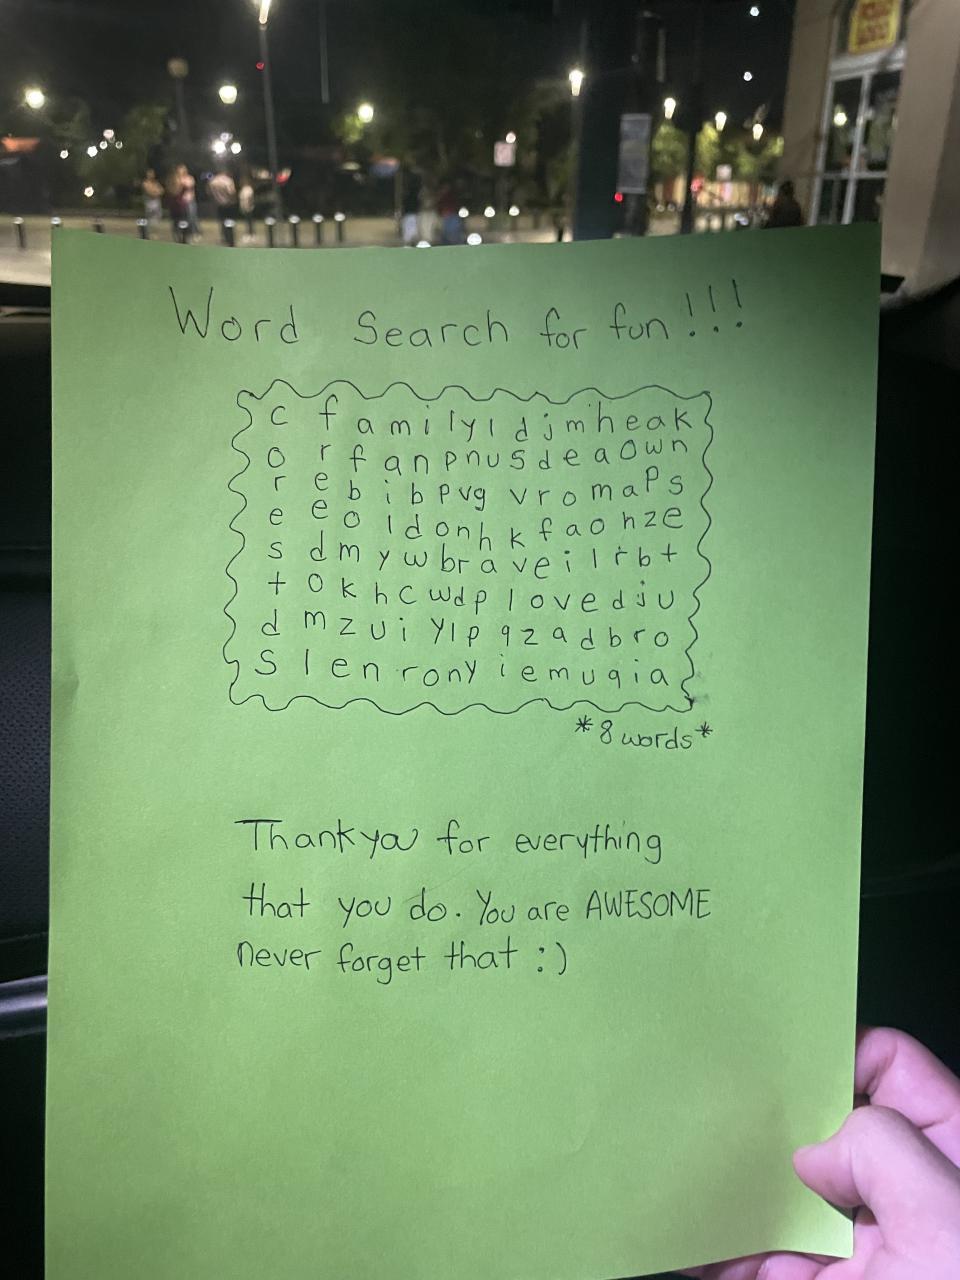 Word Search for fun!!!
c f a m i l y l d j m h e a k
o r f a n p n u s d e a o w n
r e b i b p v g v r o m a p s
e e o l d o n h k f a o n z e
s d m y w b r a v e i l r b t
t o k h c w d p l o v e d i u
d m z u i y l p q z a d b r o
s l e n r o n y i e m u q i a
*8 words*
Thank you for everything
that you do. You are AWESOME
never forget that :)